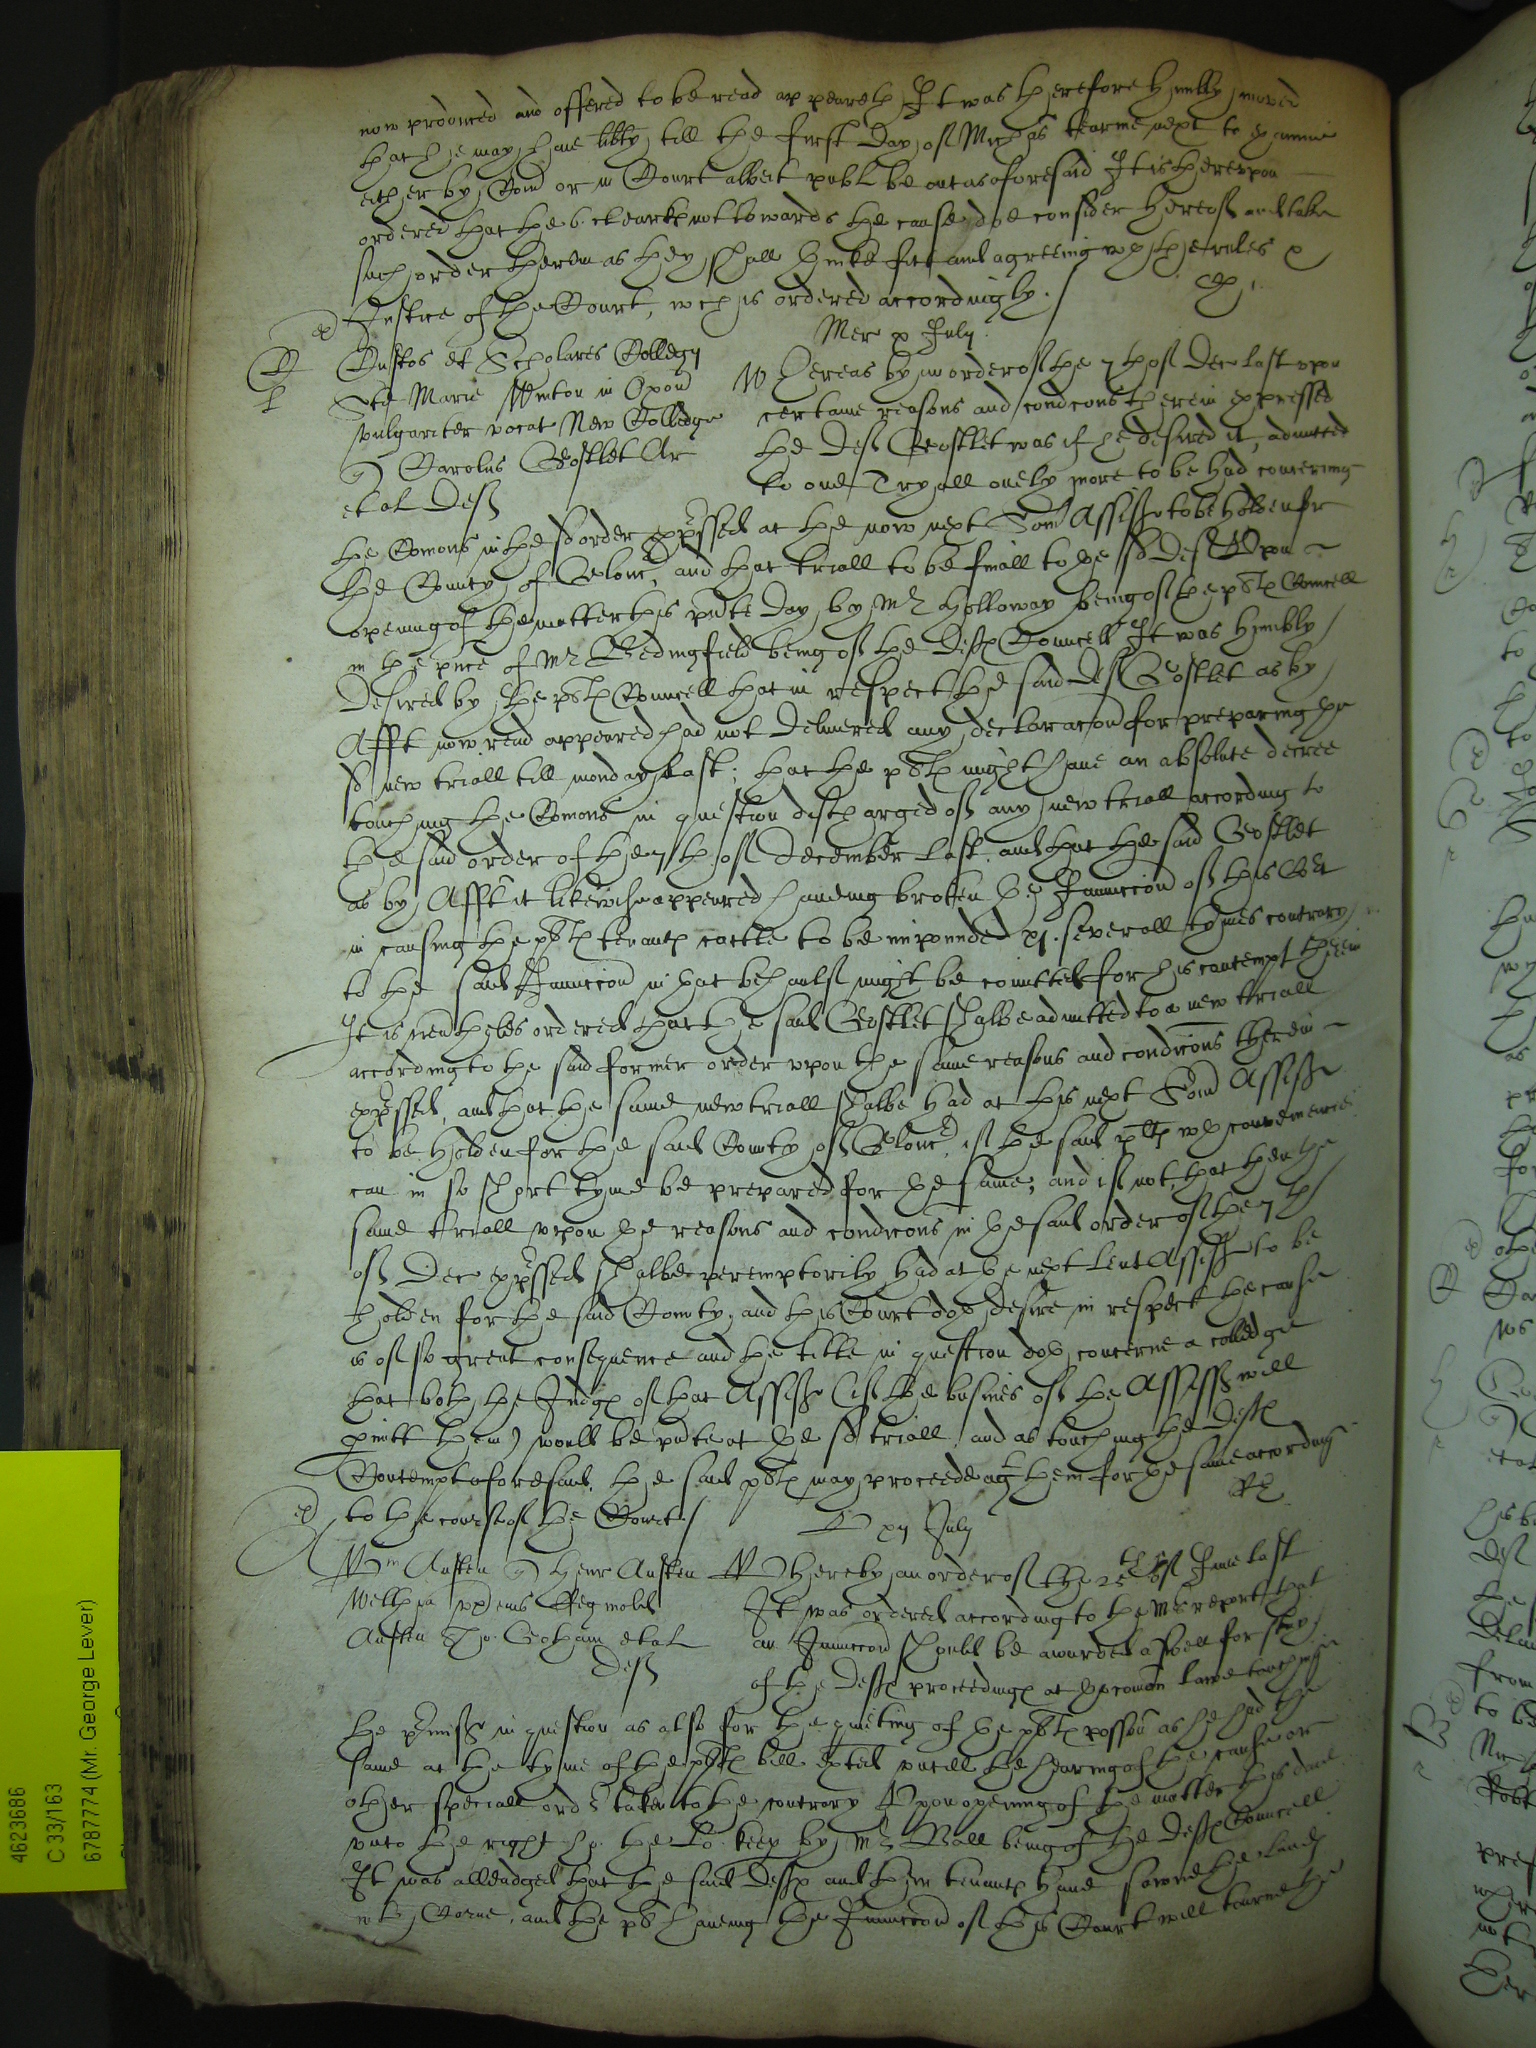 now produced and offered to be read appeareth It was therefore humbly moved
that he may have lib'ty till the first day of Mich'as tearme next to examine
either by Com' or in Court albeit publ' be out as aforesaid It is thereupon
ordered that the 6. clearks not towards the cause doe consider hereof and take
such order therein as they shall thinke fitt and agreeing wth the rules &
Justice of the Court, wch is ordered accordingly.
Mer x July
Custos et Scholares Colledgij
Ste Marie Winton in Oxon
vulgariter vocat New Colledge
Carolus Coxlet Ar
et al Def
Whereas by an order of the 7th of Dec last upon
certaine reasons and condic'ons therein expressed
the Def was if he desired it, admitted
to one Tryall onely more to be had concerning
the Com'ons in the sd order exp'ssed at the now next Som' Assisses to be holden for
the County of Glouc', and that triall to be finall to the sd Def Upon
opening of the matter this p'nte day by Mr Holloway being of the pltes Councell
in the p'nce of Mr Bedingfield being of the Deftes Councell It was humbly
desired by the pltes Councell that in respect the said Def as by
Afft now read appeared had not delivered any declarac'on for preparing the
sd new triall till monday last; that the pltes might have an absolute decree
touching the Com'ons in question discharged of any new triall according to
the said order of the 7th of December last, and that the said
as by Afft it likewise appeared having broken the Iniuncc'on of this Co'rt
in causing the pltes tenants cattle to be impounded xj. severall tymes contrary
to the said Iniuncc'on in that behaulf might be com'itted for his contempt therein
It is nevertheles ordered that the said shalbe admitted to a new triall
according to the said former order upon the same reasons and condic'ons therein
exp'ssed, and that the same new triall shalbe had at this next Som' Assisses
to be holden for the said County of Glouc', if the said pltes wth conveniencie
can in so short tyme be prepared for the same; and if not, that then the
same triall upon the reasons and condic'ons in the said order of the 7th
of Dec exp'ssed shalbe peremptorily had at the next Lent Assisses to be
holden for the said County, and this Court doth desire in respect the cause
is of so great consequence and the title in question doth concerne a colledge
that both the Judges of that Assisses (if the busines of the Assisses will
p'mitt them) would be p'nte at the sd triall, and as touching the Deftes
Contempt aforesaid, the said pltes may proceede agt them for the same according
to the course of the Court
xij July
Wm Austen Henr Austen
Regnold
Austen Tho. Gotham et al
Def
Whereby an order of the 25th of June last
It was ordered according to the Mrs report that
an Iniuncc'on should be awarded aswell for stay
of the Deftes proceedings at the com'on lawe touching
the p'misses in question as also for the quieting of the pltes poss'ion as he had the
same at the tyme of the pltes bill exh'ited untill the hearing of the cause or
other speciall order taken to the contrary Upon opening of the matter this daie
unto the right ho. the Lo. keep by Mr Ball being of the Deftes Councell
It was alleadged that the said Deftes and their tenants have sowne the lands
wth Corne, and the plt having the Iniuncc'on of this Court will tourne the
4623686
C 33/163
6787774 (Mr. George Lever)